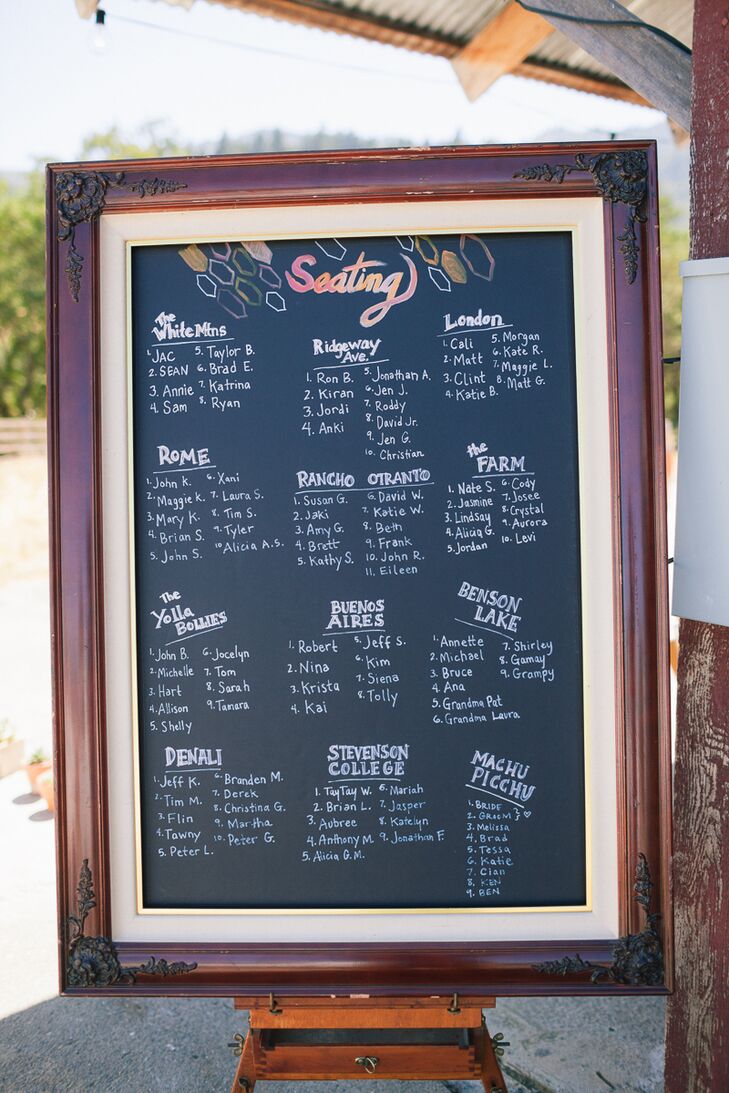 Seating
The
White Mtns
1. JAC 5. Taylor B.
2. SEAN 6. Brad E.
3. Annie 7. Katrina
4. Sam 8. Ryan
Ridgeway
Ave.
1. Ron B. 5. Jonathan A.
2. Kiran 6. Jen J.
3. Jordi 7. Roddy
4. Anki 8. David Jr.
9. Jen G.
10. Christian
London
1. Cali 5. Morgan
2. Matt 6. Kate R.
3. Clint 7. Maggie L.
4. Katie B. 8. Matt G.
ROME
1. John K. 6. Xani
2. Maggie K. 7. Laura S.
3. Mary K. 8. Tim S.
4. Brian S. 9. Tyler
5. John S. 10. Alicia A.S.
RANCHO OTRANTO
1. Susan G. 6. David W.
2. Jaki 7. Katie W.
3. Amy G. 8. Beth
4. Brett 9. Frank
5. Kathy S. 10. John R.
11. Eileen
the
FARM
1. Nate S. 6. Cody
2. Jasmine 7. Josee
3. Lindsay 8. Crystal
4. Alicia G. 9. Aurora
5. Jordan 10. Levi
The
Yolla
BOLLIES
1. John B. 6. Jocelyn
2. Michelle 7. Tom
3. Hart 8. Sarah
4. Allison 9. Tanara
5. Shelly
BUENOS
AIRES
1. Robert 5. Jeff S.
2. Nina 6. Kim
3. Krista 7. Siena
4. Kai 8. Tolly
BENSON
LAKE
1. Annette 7. Shirley
2. Michael 8. Gamay
3. Bruce 9. Grampy
4. Ana
5. Grandma Pat
6. Grandma Laura
DENALI
1. Jeff K. 6. Branden M.
2. Tim M. 7. Derek
3. Flin 8. Christina G.
4. Tawny 9. Martha
5. Peter L. 10. Peter G.
STEVENSON
COLLEGE
1. TayTay W. 6. Mariah
2. Brian L. 7. Jasper
3. Aubree 8. Katelyn
4. Anthony M. 9. Jonathan F.
5. Alicia G.M.
MACHU
PICCHU
1. BRIDE
2. GROOM } ♡
3. Melissa
4. Brad
5. Tessa
6. Katie
7. Cian
8. KEN
9. BEN